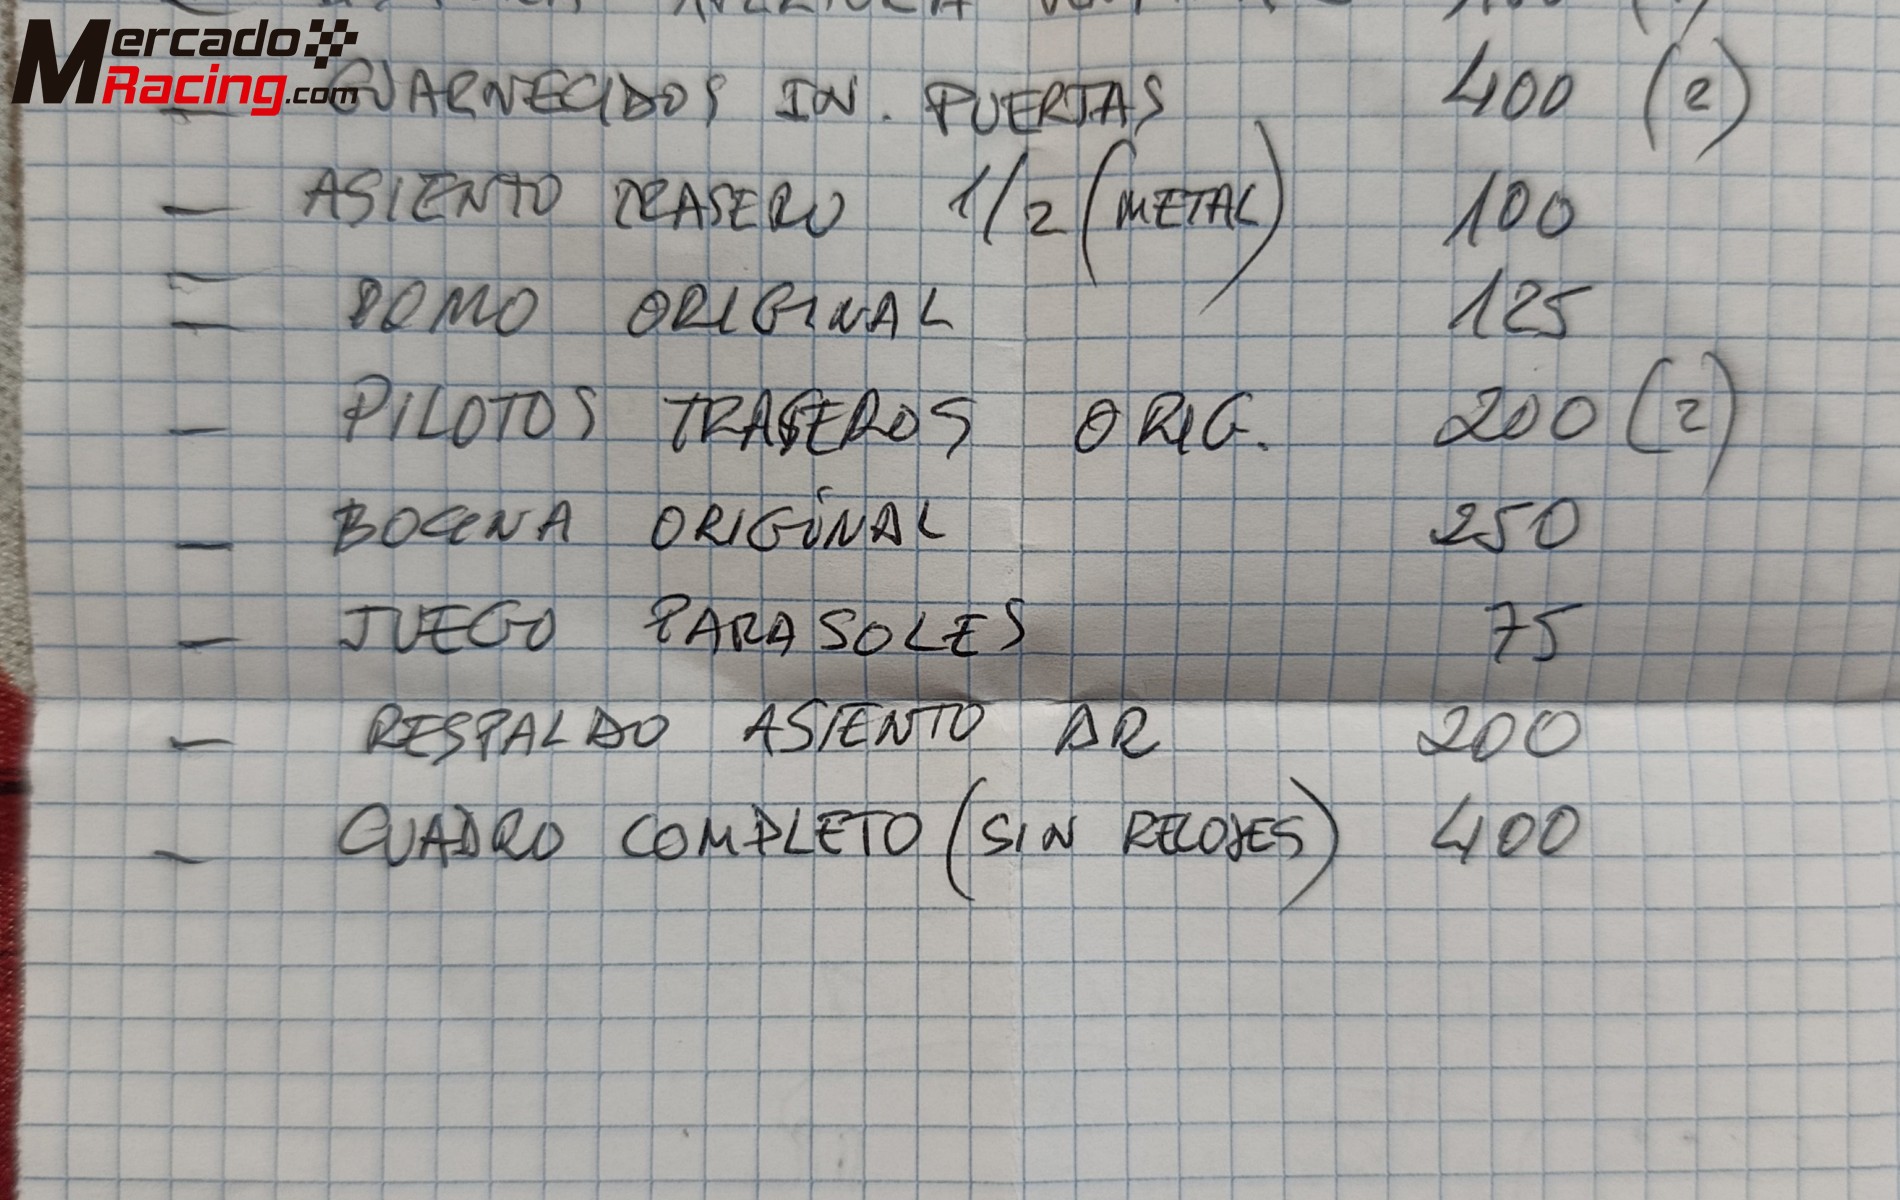 Mercado
Racing.com
- GUARNECIDOS IN. PUERTAS 400 (2)
- ASIENTO TRASERO 1/2 (METAL) 100
- POMO ORIGINAL 125
- PILOTOS TRASEROS ORIG. 200 (2)
- BOCINA ORIGINAL 250
- JUEGO PARASOLES 75
- RESPALDO ASIENTO DR 200
- CUADRO COMPLETO (SIN RELOJES) 400